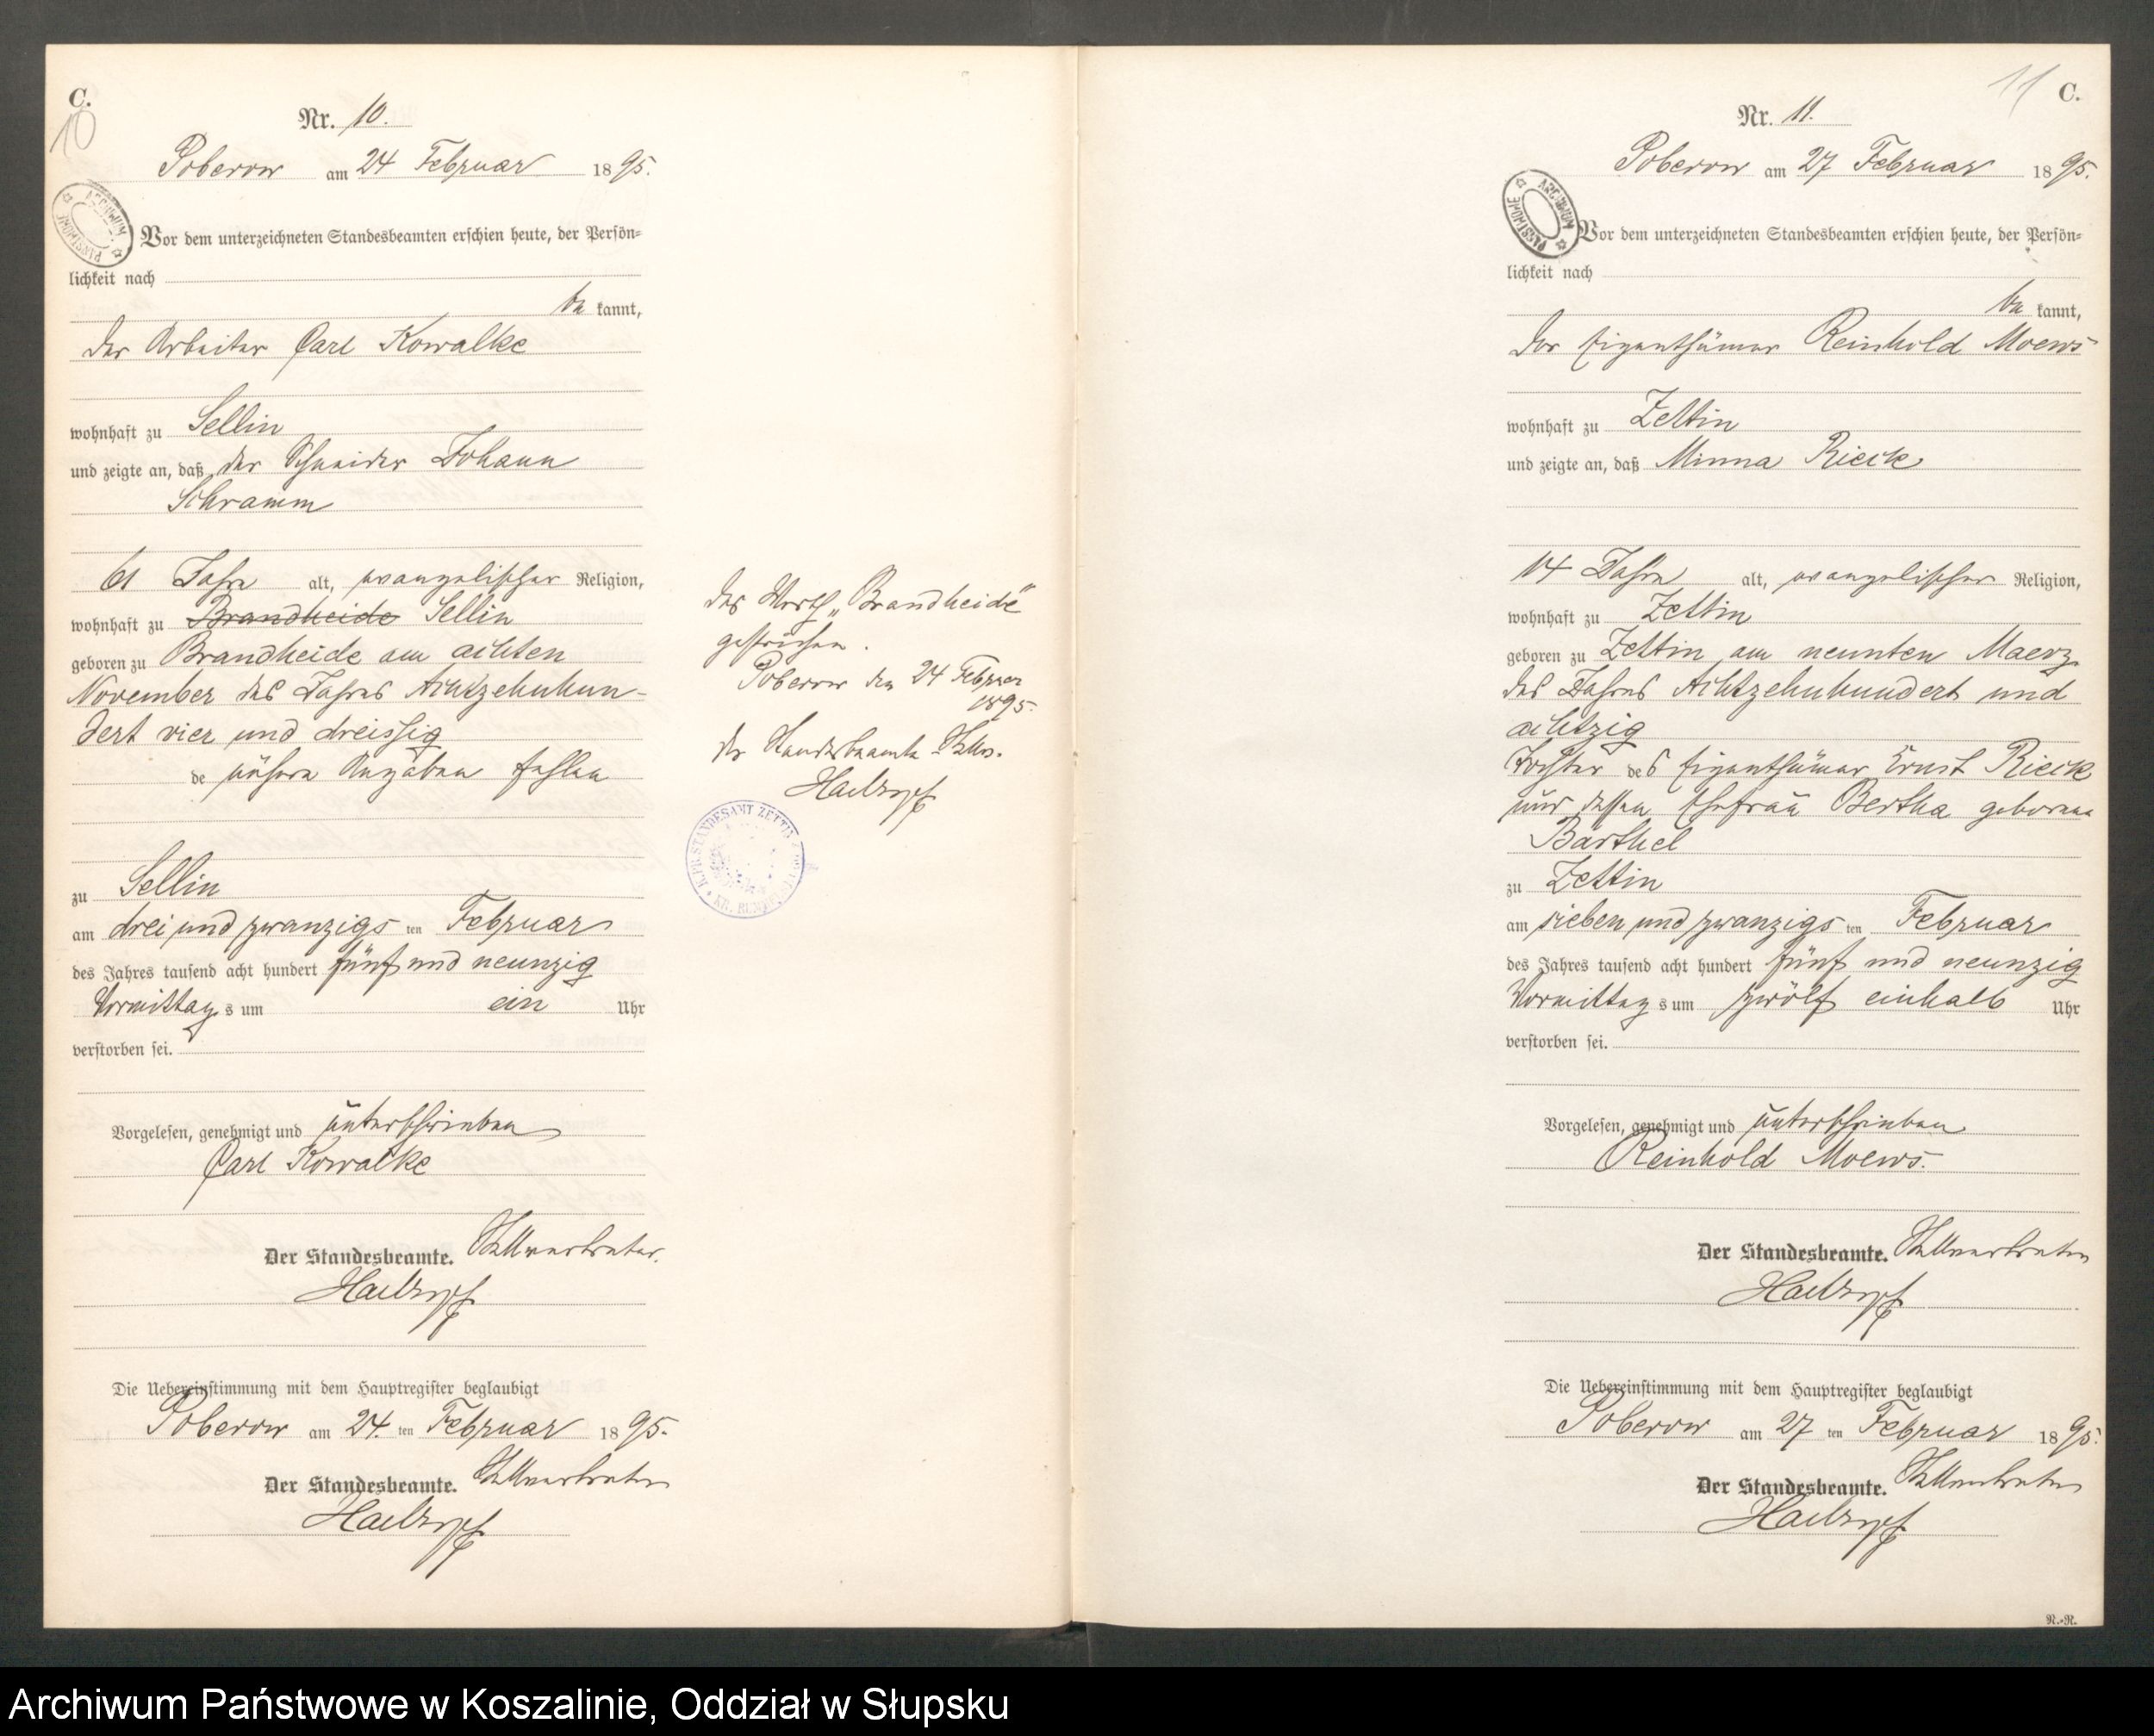 C.
10
Nr. 10.
Poberow am 24 Februar 1895.
ARCHIWUM PAŃSTWOWE
Vor dem unterzeichneten Standesbeamten erschien heute, der Persön=
lichkeit nach
be kannt,
der Arbeiter Carl Kowalke
wohnhaft zu Sellin
und zeigte an, daß der Schneider Johann
Schramm
61 Jahre alt, evangelischer Religion,
wohnhaft zu Brandheide Sellin
geboren zu Brandheide am achten
November des Jahres Achtzehnhun-
dert vier und dreissig
de nähere Angaben fehlen
zu Sellin
am drei und zwanzigs ten Februar
des Jahres tausend acht hundert fünf und neunzig
Vormittag s um ein Uhr
verstorben sei.
Vorgelesen, genehmigt und unterschrieben
Carl Kowalke
Der Standesbeamte. Stellvertreter.
Die Uebereinstimmung mit dem Hauptregister beglaubigt
Poberow am 24. ten Februar 1895.
Der Standesbeamte. Stellvertreter
das Worth „Brandheide"
gestrichen.
Poberow den 24 Februar
1895.
der Standesbeamte Stellv.
K. PR. STANDESAMT ZETTIN
11
C.
Nr. 11.
Poberow am 27 Februar 1895.
ARCHIWUM PAŃSTWOWE
Vor dem unterzeichneten Standesbeamten erschien heute, der Persön=
lichkeit nach
be kannt,
der Eigenthümer Reinhold Moews
wohnhaft zu Zettin
und zeigte an, daß Minna Rieck
14 Jahre alt, evangelischer Religion,
wohnhaft zu Zettin
geboren zu Zettin am neunten Maerz
des Jahres Achtzehnhundert und
achtzig
Tochter des Eigenthümer Ernst Rieck
und dessen Ehefrau Bertha geborene
Barthel
zu Zettin
am sieben und zwanzigs ten Februar
des Jahres tausend acht hundert fünf und neunzig
Vormittag s um zwölf einhalb Uhr
verstorben sei.
Vorgelesen, genehmigt und unterschrieben
Reinhold Moews.
Der Standesbeamte. Stellvertreter
Die Uebereinstimmung mit dem Hauptregister beglaubigt
Poberow am 27 ten Februar 1895.
Der Standesbeamte. Stellvertreter
N.-R.
Archiwum Państwowe w Koszalinie, Oddział w Słupsku